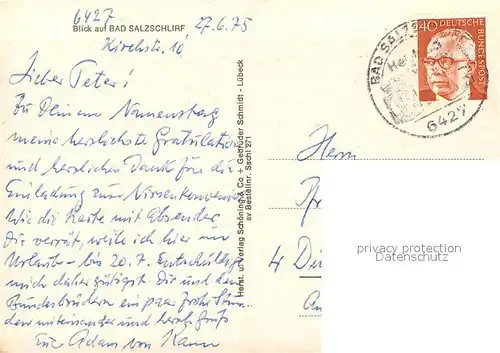 6427
27.6.75
Blick auf BAD SALZSCHLIRF
Kirchstr. 10
Lieber Peter!
Zu Deinem Namenstag
meine herzlichste Gratulation
und herzlichen Dank für die
Einladung zum
Wie die Karte mit Absender
Dir verrät, weile ich hier im
Urlaube - bis 20.7. Entschuldige
mich daher gütigst. Dir und den
Bundesbrüdern ein paar frohe Stun-
den miteinander und herzl. Gruß
Euer Adam von
Herst. u. Verlag Schöning & Co + Gebrüder Schmidt - Lübeck
sv Bestellnr. Sschl 271
40 DEUTSCHE
BUNDESPOST
BAD
6427
Herrn
4
privacy protection
Datenschutz